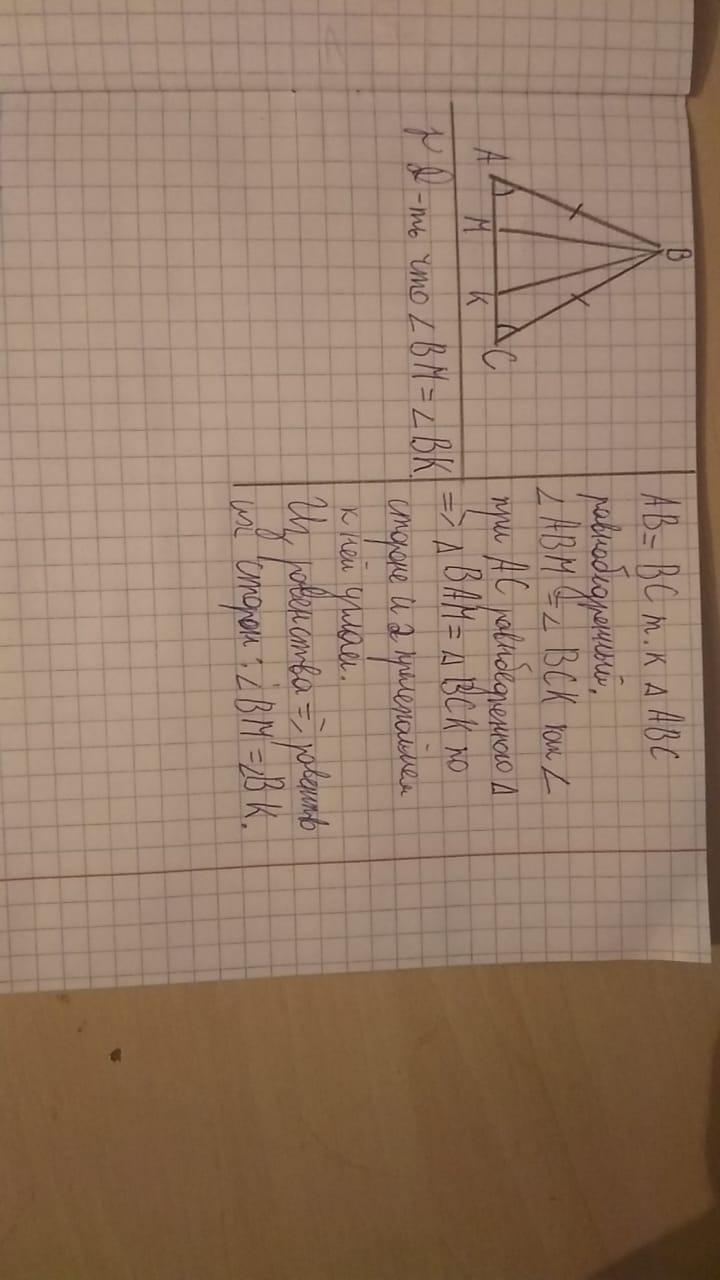 B
A M K C
Д-ть что ∠BM = ∠BK.
AB = BC т.к △ ABC
равнобедренный.
∠ABM = ∠ BCK как ∠
при AC равнобедренного △
=> △ BAM = △ BCK по
стороне и 2 прилежайшем
к ней углам.
Из равенства => равенство
их сторон: ∠BM = ∠BK.